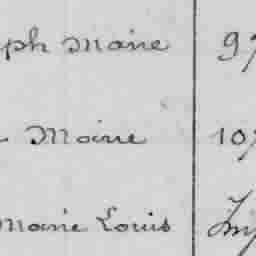 ph Marie 97
Marie 107
Marie Louis Imp